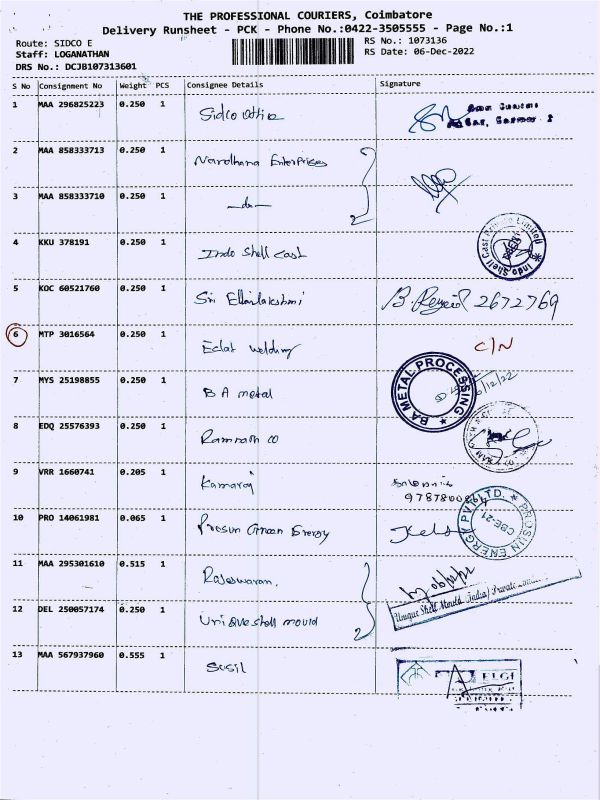 THE PROFESSIONAL COURIERS, Coimbatore
Delivery Runsheet - PCK - Phone No.:0422-3505555 - Page No.:1
Route: SIDCO E
RS No.: 1073136
Staff: LOGANATHAN
RS Date: 06-Dec-2022
DRS No.: DCJB107313601
S No Consignment No Weight PCS Consignee Details Signature
1 MAA 296825223 0.250 1 Sidco Office
2 MAA 858333713 0.250 1 Nardhana Enterprises
3 MAA 858333710 0.250 1 -do-
4 KKU 378191 0.250 1 Indo Shell Cast
Indo Shell Cast Private Limited
5 KOC 60521760 0.250 1 Sri Ellailakshmi 2672769
6 MTP 3016564 0.250 1 Eclat Welding C/N
7 MYS 25198855 0.250 1 B A metal
BA METAL PROCESSING
6/12/22
8 EDQ 25576393 0.250 1 Ramnath co
9 VRR 1660741 0.205 1 Kamaraj
10 PRO 14061981 0.065 1 Prosun Green Energy
PROSUN ENERGY PVT LTD. CBE-21
11 MAA 295301610 0.515 1 Rajeswaran.
12 DEL 250057174 0.250 1 Unique shell mould
Unique Shell Mould (India) Private
13 MAA 567937960 0.555 1 Susil
ELGI